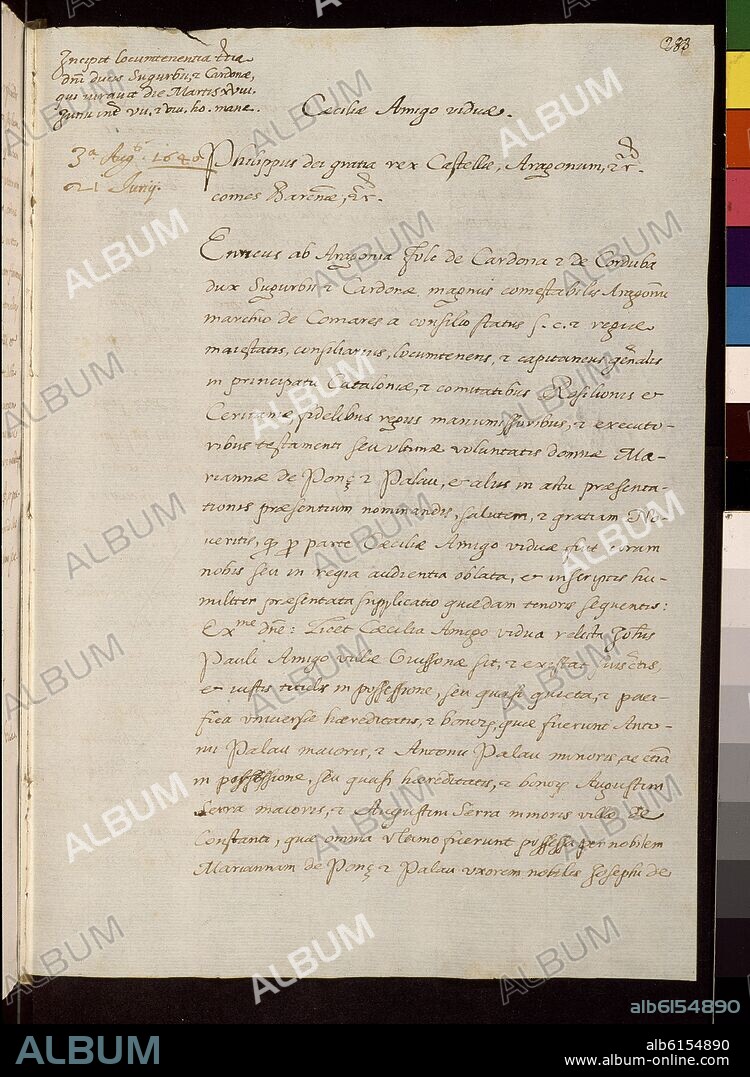 283
Incipit locumtenentia t̃tia
dñi ducis Sugurbis, & Cardonæ,
qui iuravit die Martis xviii.
Junii int̃ vii. & viii. ho. mane.
3ª Augᵗⁱ 1640
21 Junij.
Ceciliæ Amigo viduæ.
Philippus dei gratia rex Castellæ, Aragonum, &c.
comes Barcñæ, &c.
Enricus ab Aragonia folc de Cardona & de Corduba
dux Sugurbis & Cardonæ, magnus comestabilis Aragonũ
marchio de Comares a consilio status s. c. & regiæ
maiestatis, consiliarius, locumtenens, & capitaneus gñalis
in principatu Cataloniæ, & comitatibus Rosilionis et
Ceritaniæ, fidelibus regiis manumissoribus, & executo-
ribus testamenti seu ultimæ voluntatis donnæ Ma-
riannæ de Ponç & Palau, et aliis in actu præsenta-
tionis præsentium nominandis, salutem, & gratiam. No-
veritis, q̃ p parte Cæciliæ Amigo viduæ fuit coram
nobis seu in regia audientia oblata, et in scriptis hu-
militer præsentata supplicatio quædam tenoris sequentis:
Exᵐᵉ dñe: Licet Cæcilia Amigo vidua relicta Joh̃is
Pauli Amigo villæ Guissonæ sit, & existat
et iustis titulis in possessione, seu quasi quieta, & paci-
fica universæ hæreditatis, & bonoꝝ, quæ fuerunt Anto-
nii Palau maioris, & Antonii Palau minoris, ac etiã
in possessione, seu quasi hæreditatis, & bonoꝝ Augustini
Serra maioris, & Augustini Serra minoris villæ de
Constanti, quæ omnia ultimo fuerunt possessa per nobilem
Mariannam de Ponç & Palau uxorem nobilis Josephi de
ALBUM
alb6154890
ALBUM
alb6154890
www.album-online.com